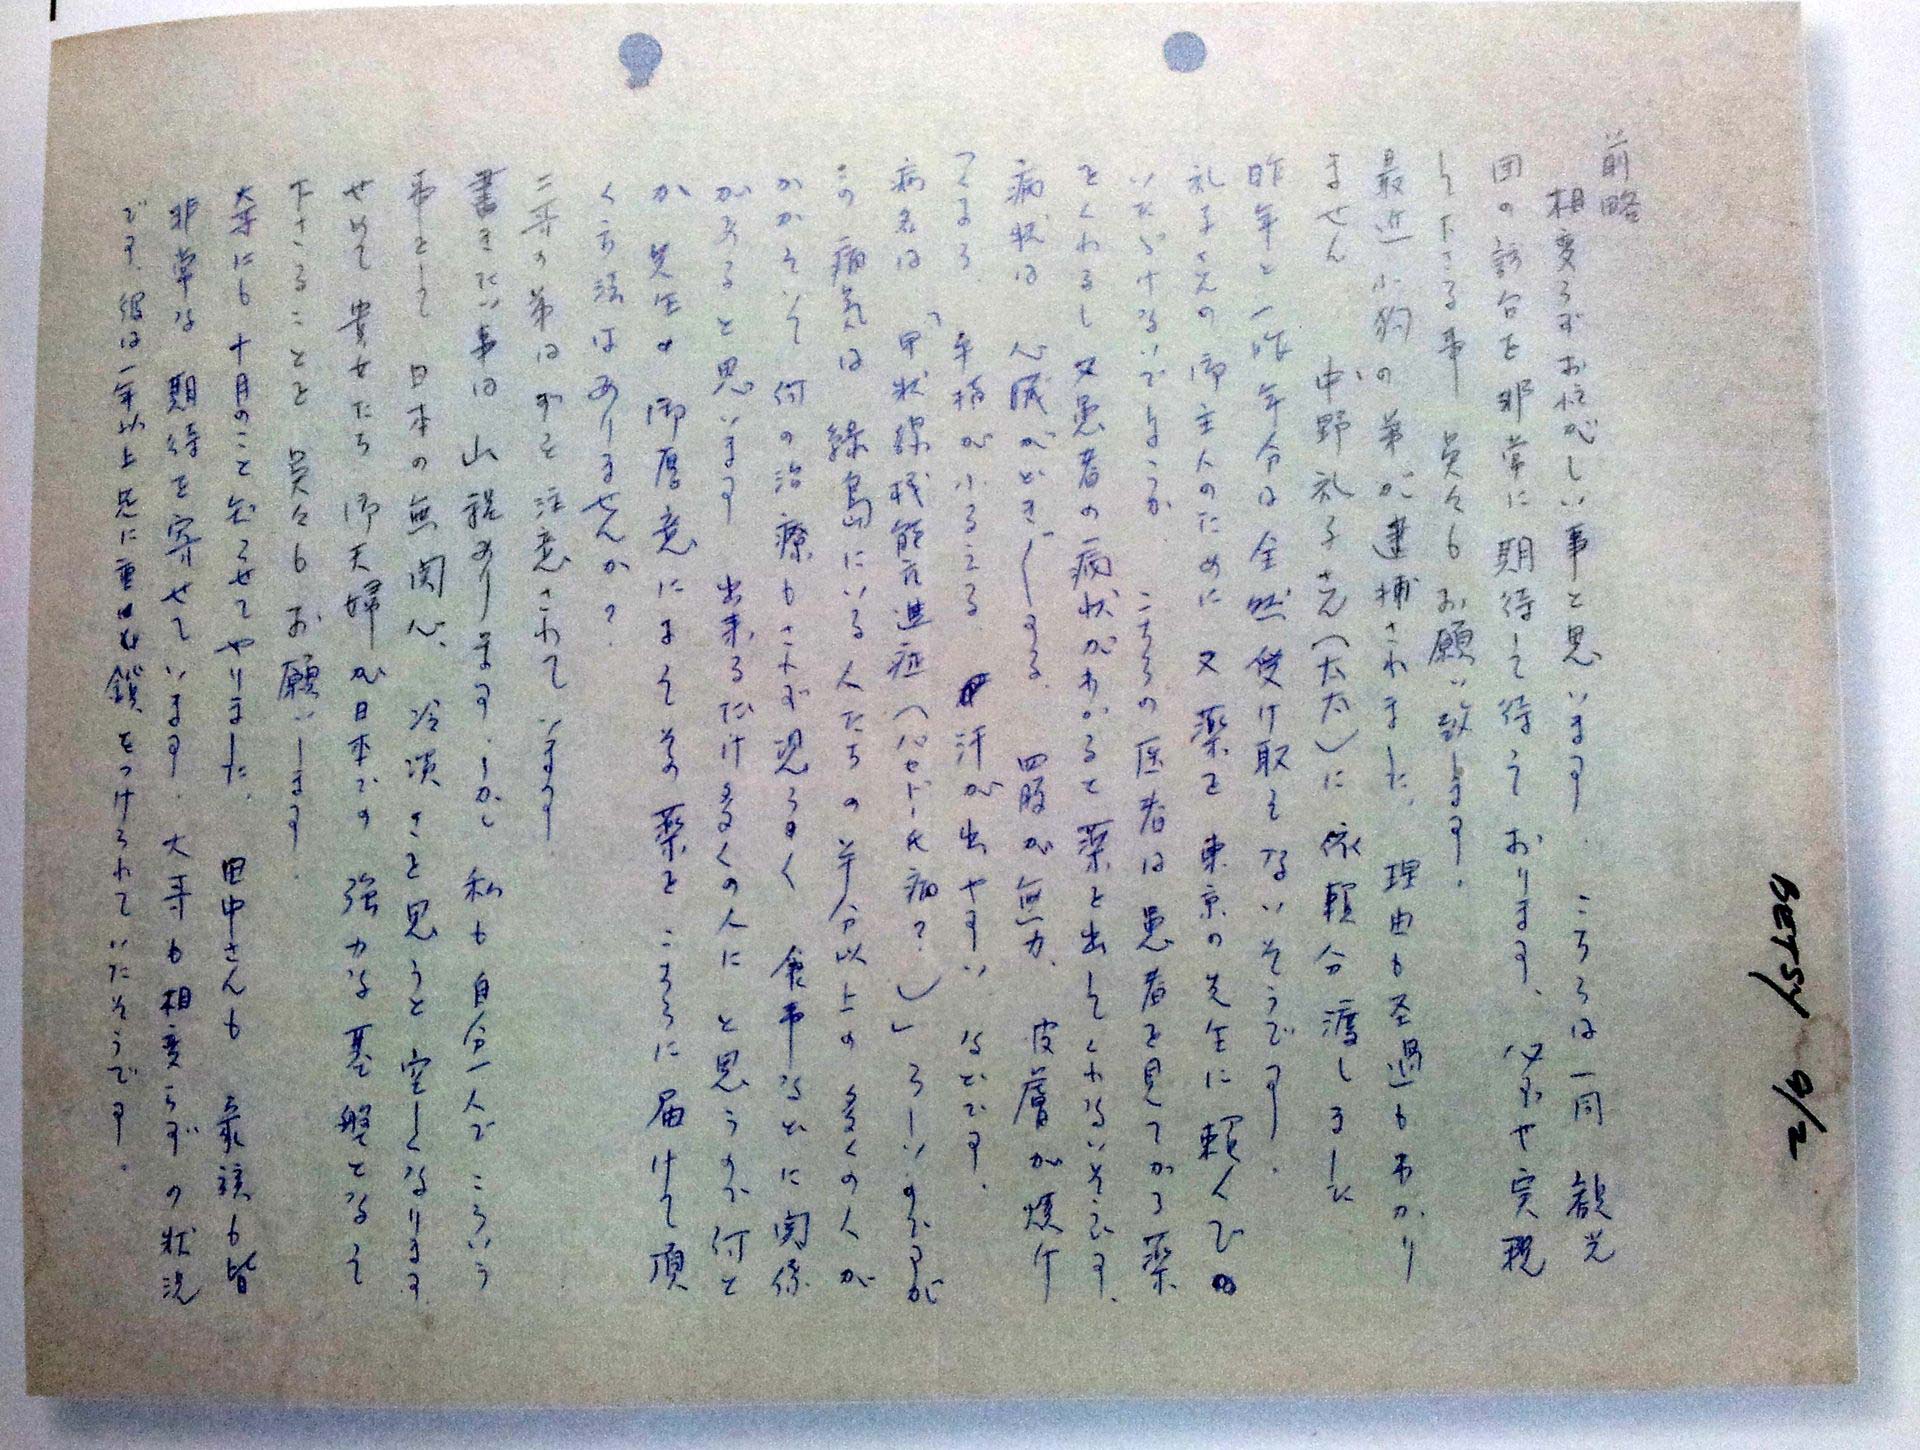 前略
相変らずお忙がしい事と思います． こちらは一同 観光
団の訪台を非常に期待して待っております、必ずや実現
して下さる事 呉々もお願い致します．
最近 小狗の弟が逮捕されました. 理由も経過もわかり
ません 中野礼子さん（太太）に依頼分渡しました
昨年と一昨年分は全然受け取ってないそうです．
礼子さんの御主人のために又薬を東京の先生に頼んで
いただけないでしょうか こちらの医者は患者を見てから薬
をくれるし又患者の病状がわかると薬を出してくれないそうです.
病状は 心臓がどきどきする. 四肢が無力、皮膚が焼け
てる 手指が小るえる 汗が出やすい などです．
病名は「甲状線機能亢進症（バセドー氏病？）」らしいのですが
この病気は 緑島にいる人たちの半分以上の多くの人が
かかっていて何の治療もされず 食事などに関係
があると思います 出来るだけ多くの人にと思うので何と
か先生の御厚意によってその薬をこちらに届けて頂
く方法はありませんか？
二哥の弟はずっと注意されています
書きたい事は山程あります．しかし 私も自分一人でこういう
事をして 日本の無関心、冷淡さを思うと空しくなります
せめて貴女たち御夫婦が日本での強力な基盤となって
下さることを呉々もお願いします．
大哥にも十月のこと知らせてやりました. 田中さんも 家族も皆
非常な期待を寄せています．大哥も相変らずの状況
です．彼は一年以上足に重い鎖をつけられていたそうです．
BETSY 2/9